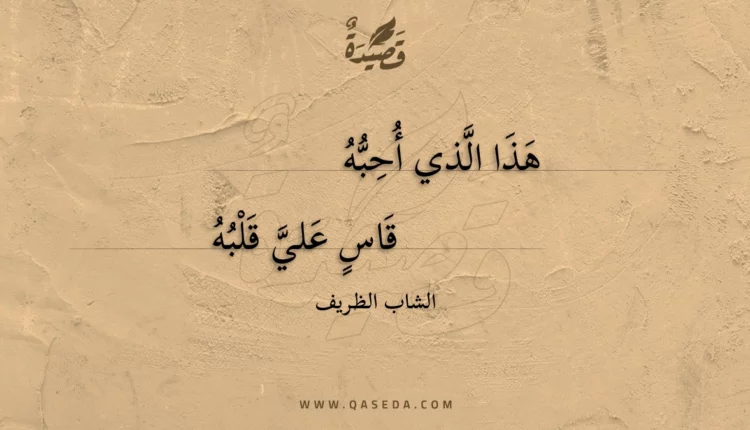 قَصِيدَةٌ
هَذَا الَّذي أُحِبُّهُ
قَاسٍ عَليَّ قَلْبُهُ
الشاب الظريف
WWW.QASEDA.COM